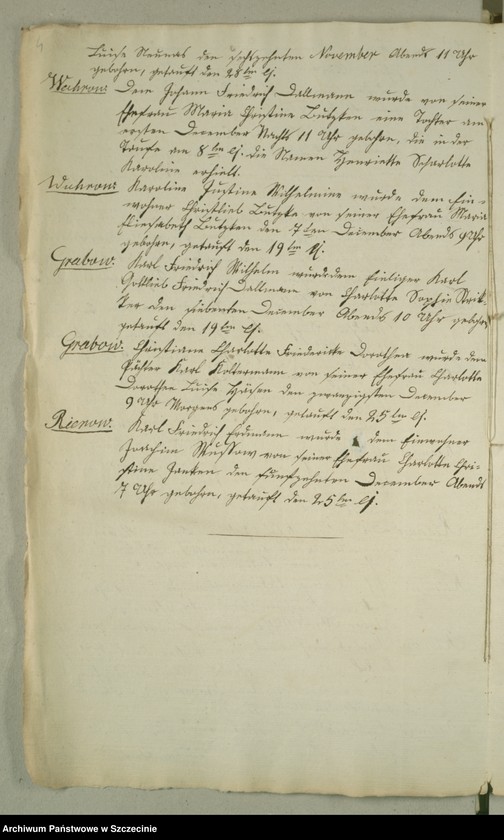 4
Luise Neumas den sechzehnten November Abends 11 Uhr
gebohren, getauft den 28ten ej.
Wachron: Dem Johann Friedrich Dallmann wurde von seiner
Ehefrau Maria Christine Butzken eine Tochter am
ersten December Nachts 11 Uhr gebohren, die in der
Taufe am 8ten ej. die Namen Henriette Scharlotte
Karoline erhielt.
Wuhron: Karoline Justine Wilhelmine wurde dem Ein-
wohner Christlieb Butzke von seiner Ehefrau Maria
Eliesabeth Butzken den 7ten December Abends 9 Uhr
gebohren, getauft den 19ten ej.
Grabow. Karl Friedrich Wilhelm wurde dem Karl
Gottlieb Friedrich Dallmann von Charlotte Sophie
den siebenten December Abends 10 Uhr gebohren
getauft den 19ten ej.
Grabow. Christiane Charlotte Friedericke Dorothea wurde dem
Karl Koltermann von seiner Ehefrau Charlotte
Dorothee Luise den zwanzigsten December
9 Uhr Morgens gebohren, getauft den 25ten ej.
Rienow. Karl Friedrich Erdmann wurde dem Einwohner
Joachim Mussow von seiner Ehefrau Charlotte Chri-
stine Janken den funfzehnten December Abends
7 Uhr gebohren, getauft den 25ten ej.
Archiwum Państwowe w Szczecinie